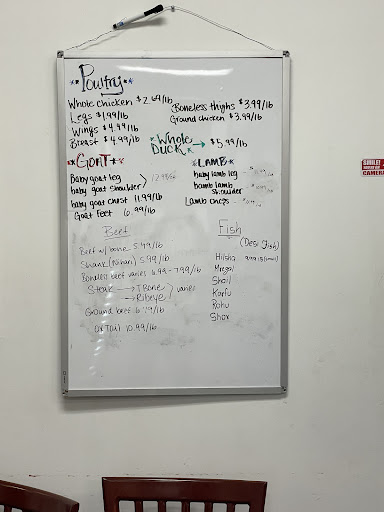 Poultry
Whole chicken $2.69/lb
Legs $1.99/lb
Wings $4.99/lb
Breast $4.99/lb
Boneless thighs $3.99/lb
Ground chicken $3.99/lb
Whole Duck → $5.99/lb
Goat
Baby goat leg
baby goat shoulder
baby goat chest 11.99/lb
Goat Feet 6.99/lb
LAMB
baby lamb leg
lamb
shoulder
Lamb chops
Beef
Beef w/ bone 5.99/lb
Shank (Nihari) 5.99/lb
Boneless beef varies 6.99-7.99/lb
Steak → T Bone
→ Ribeye
varies
Ground beef
Ox Tail 10.99/lb
Fish
(Desi Fish)
Hilsha
Mrigal
Rohu
SMILE!
CAMERA